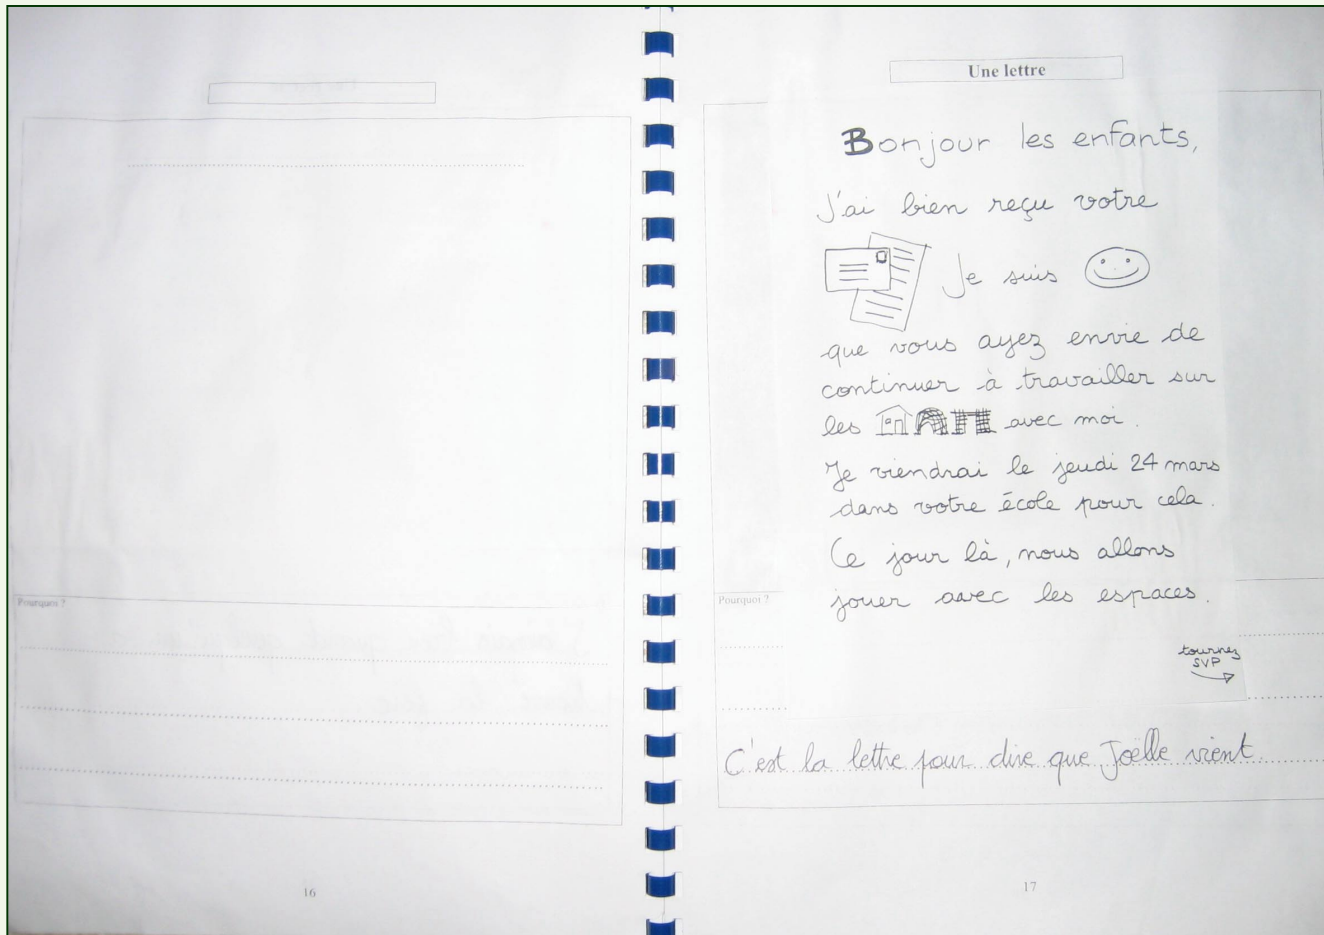 Pourquoi ?
16
Une lettre
Bonjour les enfants,
J'ai bien reçu votre
Je suis
que vous ayez envie de
continuer à travailler sur
les avec moi.
Je viendrai le jeudi 24 mars
dans votre école pour cela.
Ce jour là, nous allons
jouer avec les espaces.
Pourquoi ?
tournez
SVP
C'est la lettre pour dire que Joëlle vient.
17